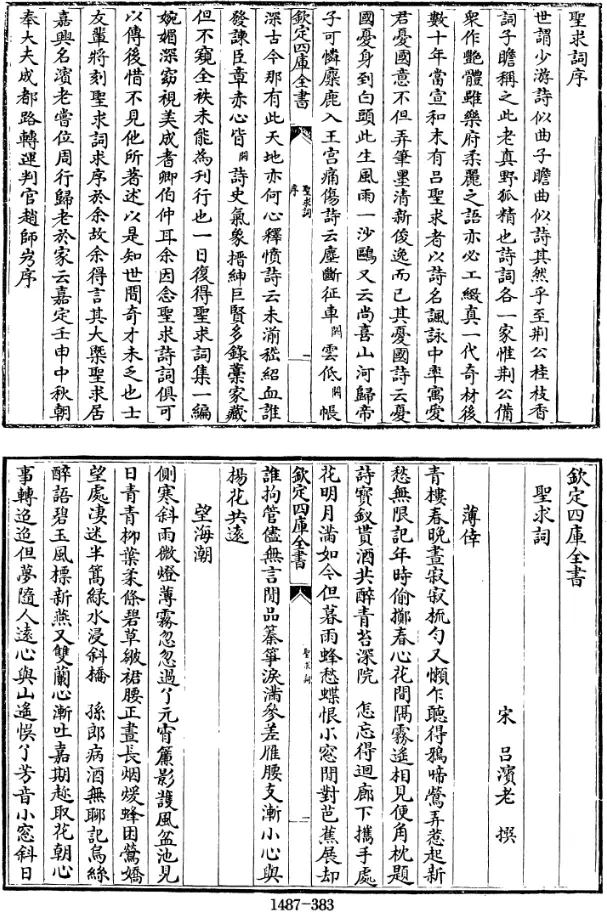 聖求詞序
世謂少游詩似曲子瞻曲似詩其然乎至荆公桂枝香
詞子瞻稱之此老真野狐精也詩詞各一家惟荆公備
衆作艷體雖樂府柔麗之語亦必工緻真一代奇材後
數十年當宣和末有吕聖求者以詩名諷詠中率寓愛
君憂國意不但弄筆墨清新俊逸而已其憂國詩云憂
國憂身到白頭此生風雨一沙鷗又云尚喜山河歸帝
子可憐麋鹿入王宫痛傷詩云塵斷征車闕雲低闕帳
欽定四庫全書
聖求詞
序
一
深古今那有此天地亦何心釋憤詩云未湔嵇紹血誰
發諫臣章赤心皆闕詩史氣象搢紳巨賢多錄藁家藏
但不窺全袟未能為刊行也一日復得聖求詞集一編
婉媚深窈視美成耆卿伯仲耳余因念聖求詩詞俱可
以傳後惜不見他所著述以是知世間奇才未乏也士
友輩將刻聖求詞求序於余故余得言其大槩聖求居
嘉興名濱老嘗位周行歸老於家云嘉定壬申中秋朝
奉大夫成都路轉運判官趙師屶序
欽定四庫全書
聖求詞
宋 吕濱老 撰
薄倖
青樓春晚晝寂寂梳勻又懶乍聽得鴉啼鶯弄惹起新
愁無限記年時偷擲春心花間隔霧遥相見便角枕題
詩寳釵貰酒共醉青苔深院 怎忘得迴廊下攜手處
花明月滿如今但暮雨蜂愁蝶恨小窓閒對芭蕉展却
欽定四庫全書
聖求詞
誰拘管儘無言閒品秦箏淚滿參差雁腰支漸小心與
楊花共遠
望海潮
側寒斜雨微燈薄霧忽忽過了元宵簾影護風盆池見
日青青柳葉柔條碧草皺裙腰正晝長烟煖蜂困鶯嬌
望處凄迷半篙緑水浸斜橋 孫郎病酒無聊記烏絲
醉語碧玉風標新燕又雙蘭心漸吐嘉期趂取花朝心
事轉迢迢但夢隨人遠心與山遥悞了芳音小窓斜日
1487-383